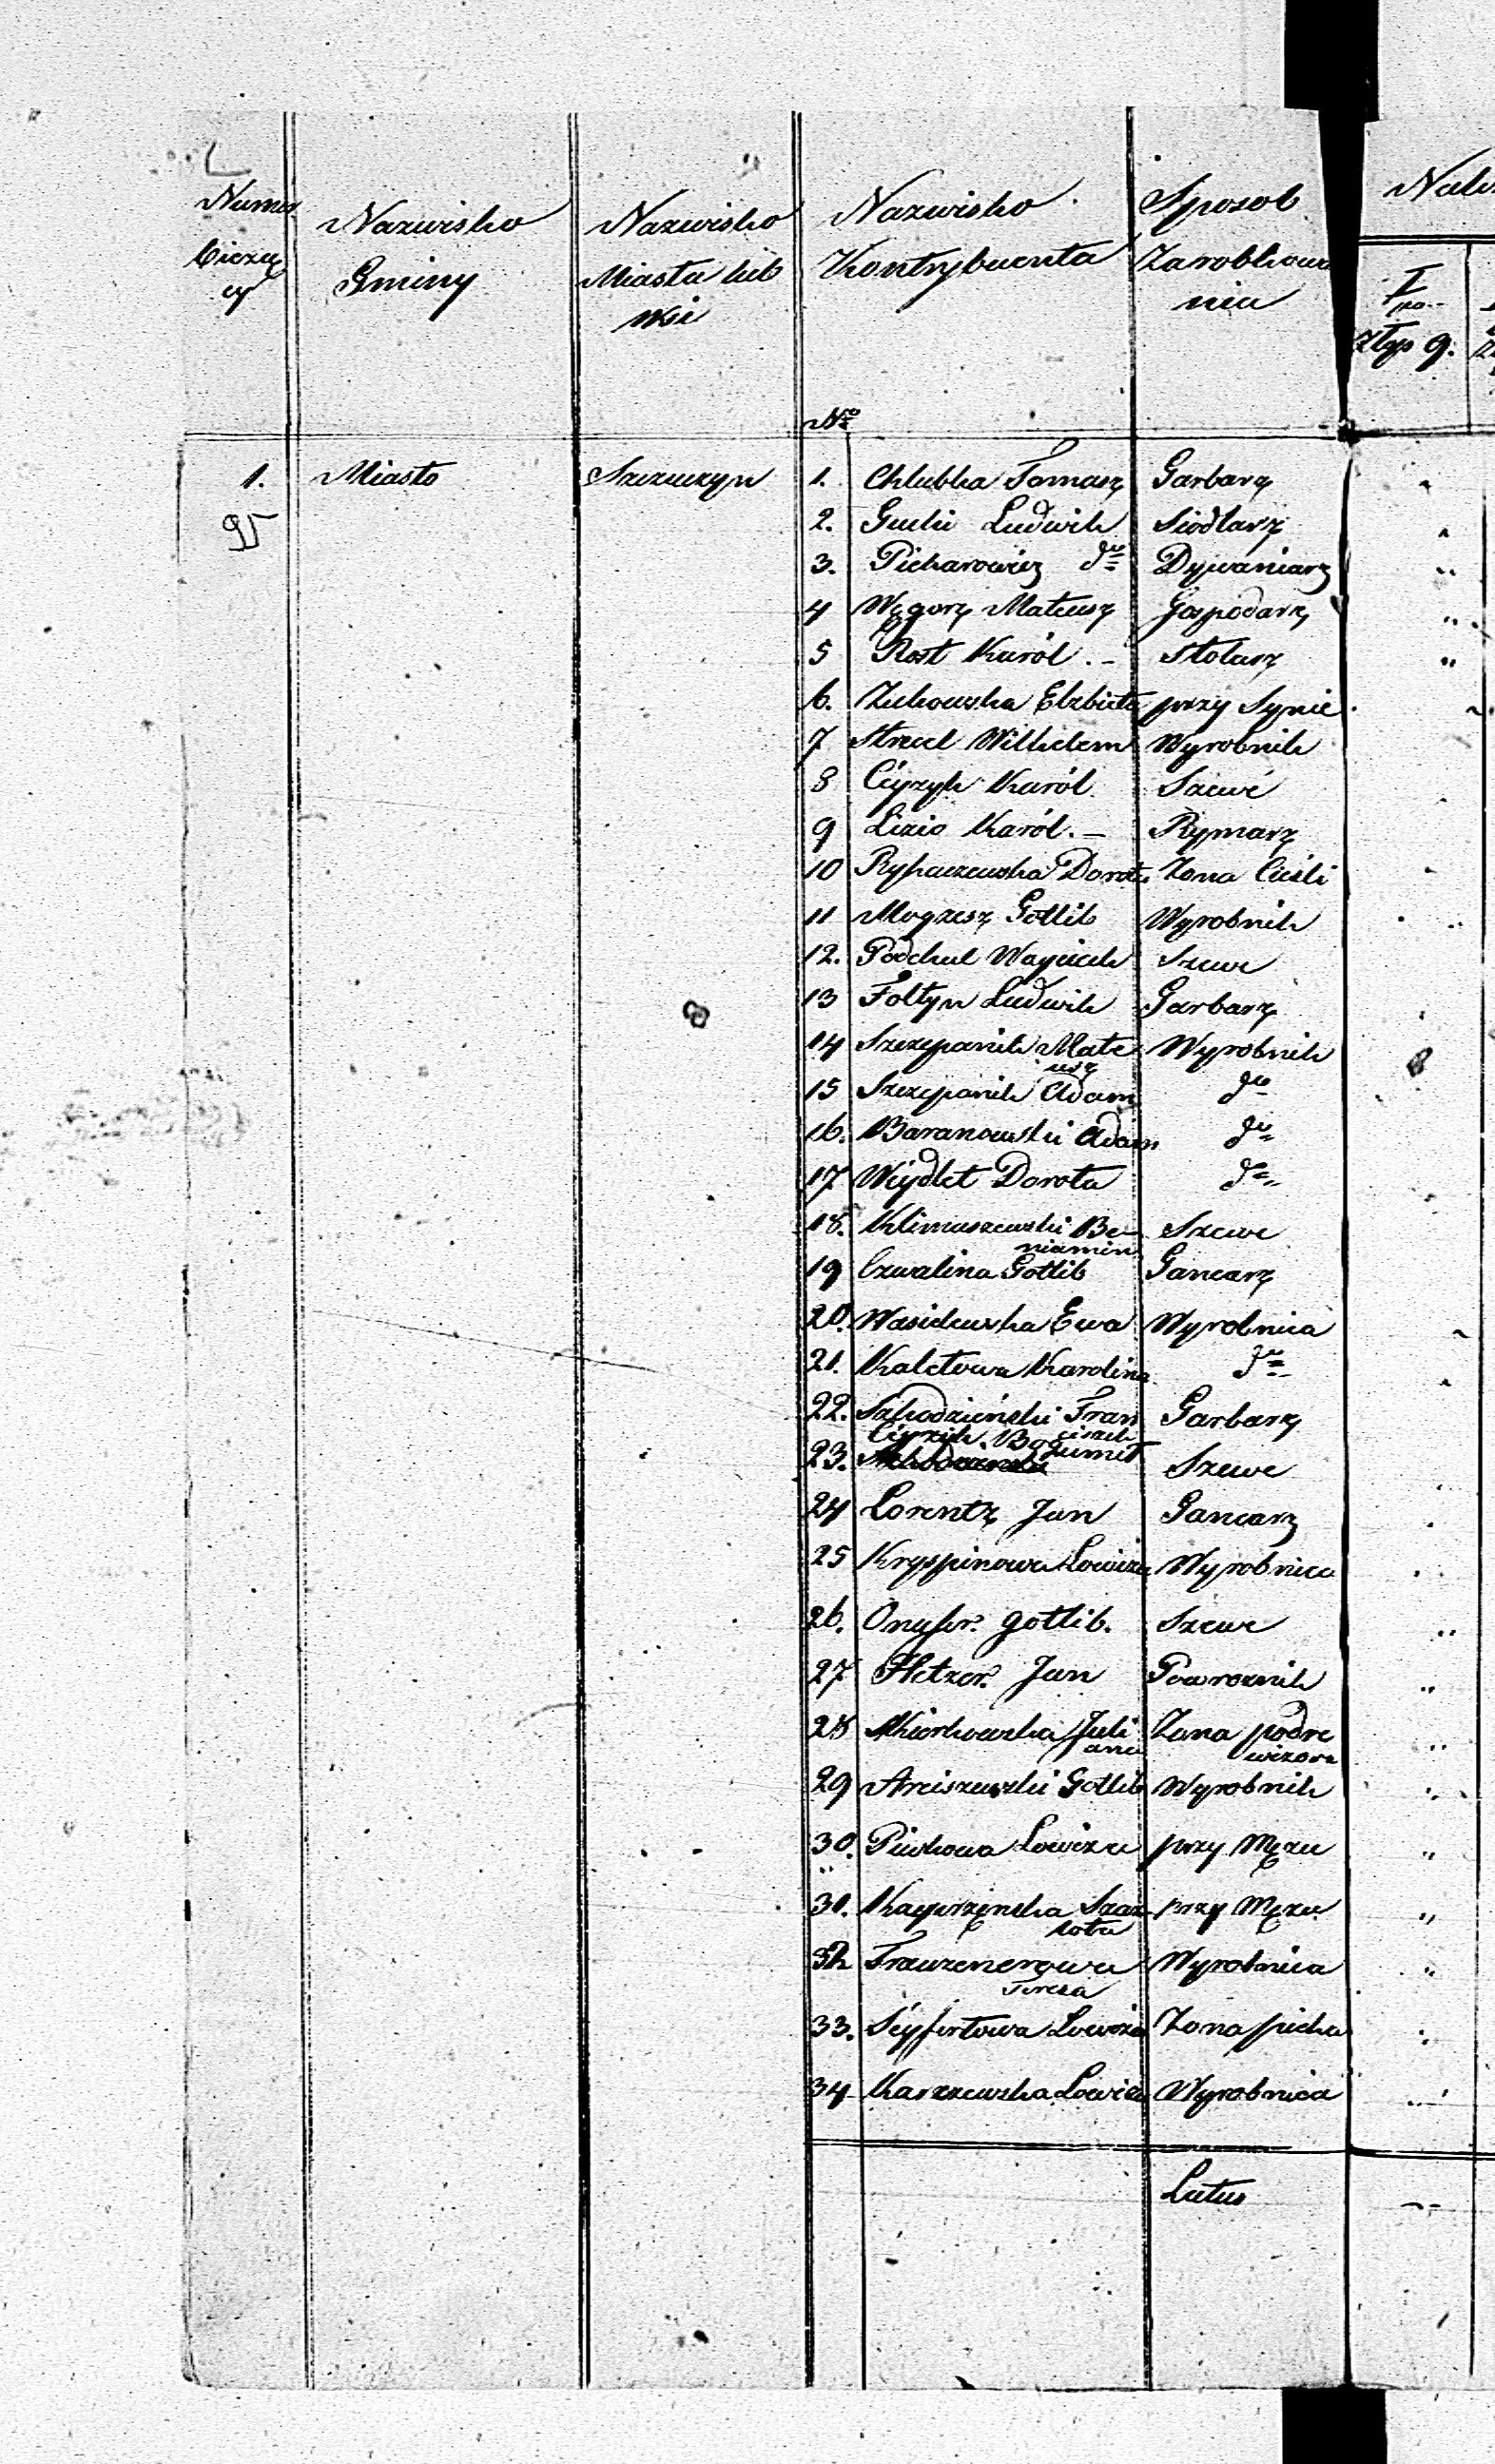 Numer Bieżący
Nazwisko Gminy
Nazwisko Miasta lub Wsi
Nazwisko Kontrybuenta
Sposob Zarobkowania
I po
Złtp g.
No
1. Miasto Szczuczyn 1. Chlubka Tomasz Garbarz
95
2. Ludwik Siodlarz
3. Picharowicz do Dywaniarz
4 Węgorz Mateusz Gospodarz
5 Rost Karól. – Stolarz
6. Zukowska Elzbieta przy Synie
7 Wilhelm Wyrobnik
8 Ciyzyk Karól Szewc
9 Lizio Karól. – Rymarz
10 Dorota Zona Cieśli
11 Gotlib Wyrobnik
12. Podchul Woyciech Szewc
13 Foltyn Ludwik Garbarz
14 Szczepanik Mateusz Wyrobnik
15 Szczepanik Adam do
16. Baranowski Adam do
17 Weydlet Dorota do
18. Klimaszewski Beniamin Szewc
19 Czwalina Gotlib Gancarz
20. Wasilewska Ewa Wyrobnica
21. Kaletowa Karolina do
22. Franciszek Garbarz
23. Ciyzyk Bogumił Szewc
24 Lorentz Jan Gancarz
25 Kryspinowa Lowiza Wyrobnica
26. Gotlib. Szewc
27 Jan Powroznik
28 Juliana Zona podrewizora
29 Arciszewski Gotlib Wyrobnik
30. Lowiza przy Męzu
31. przy Męzu
32 Teresa Wyrobnica
33. Seyfertowa Lowiza Zona
34 Karszewska Lowiza Wyrobnica
Latus